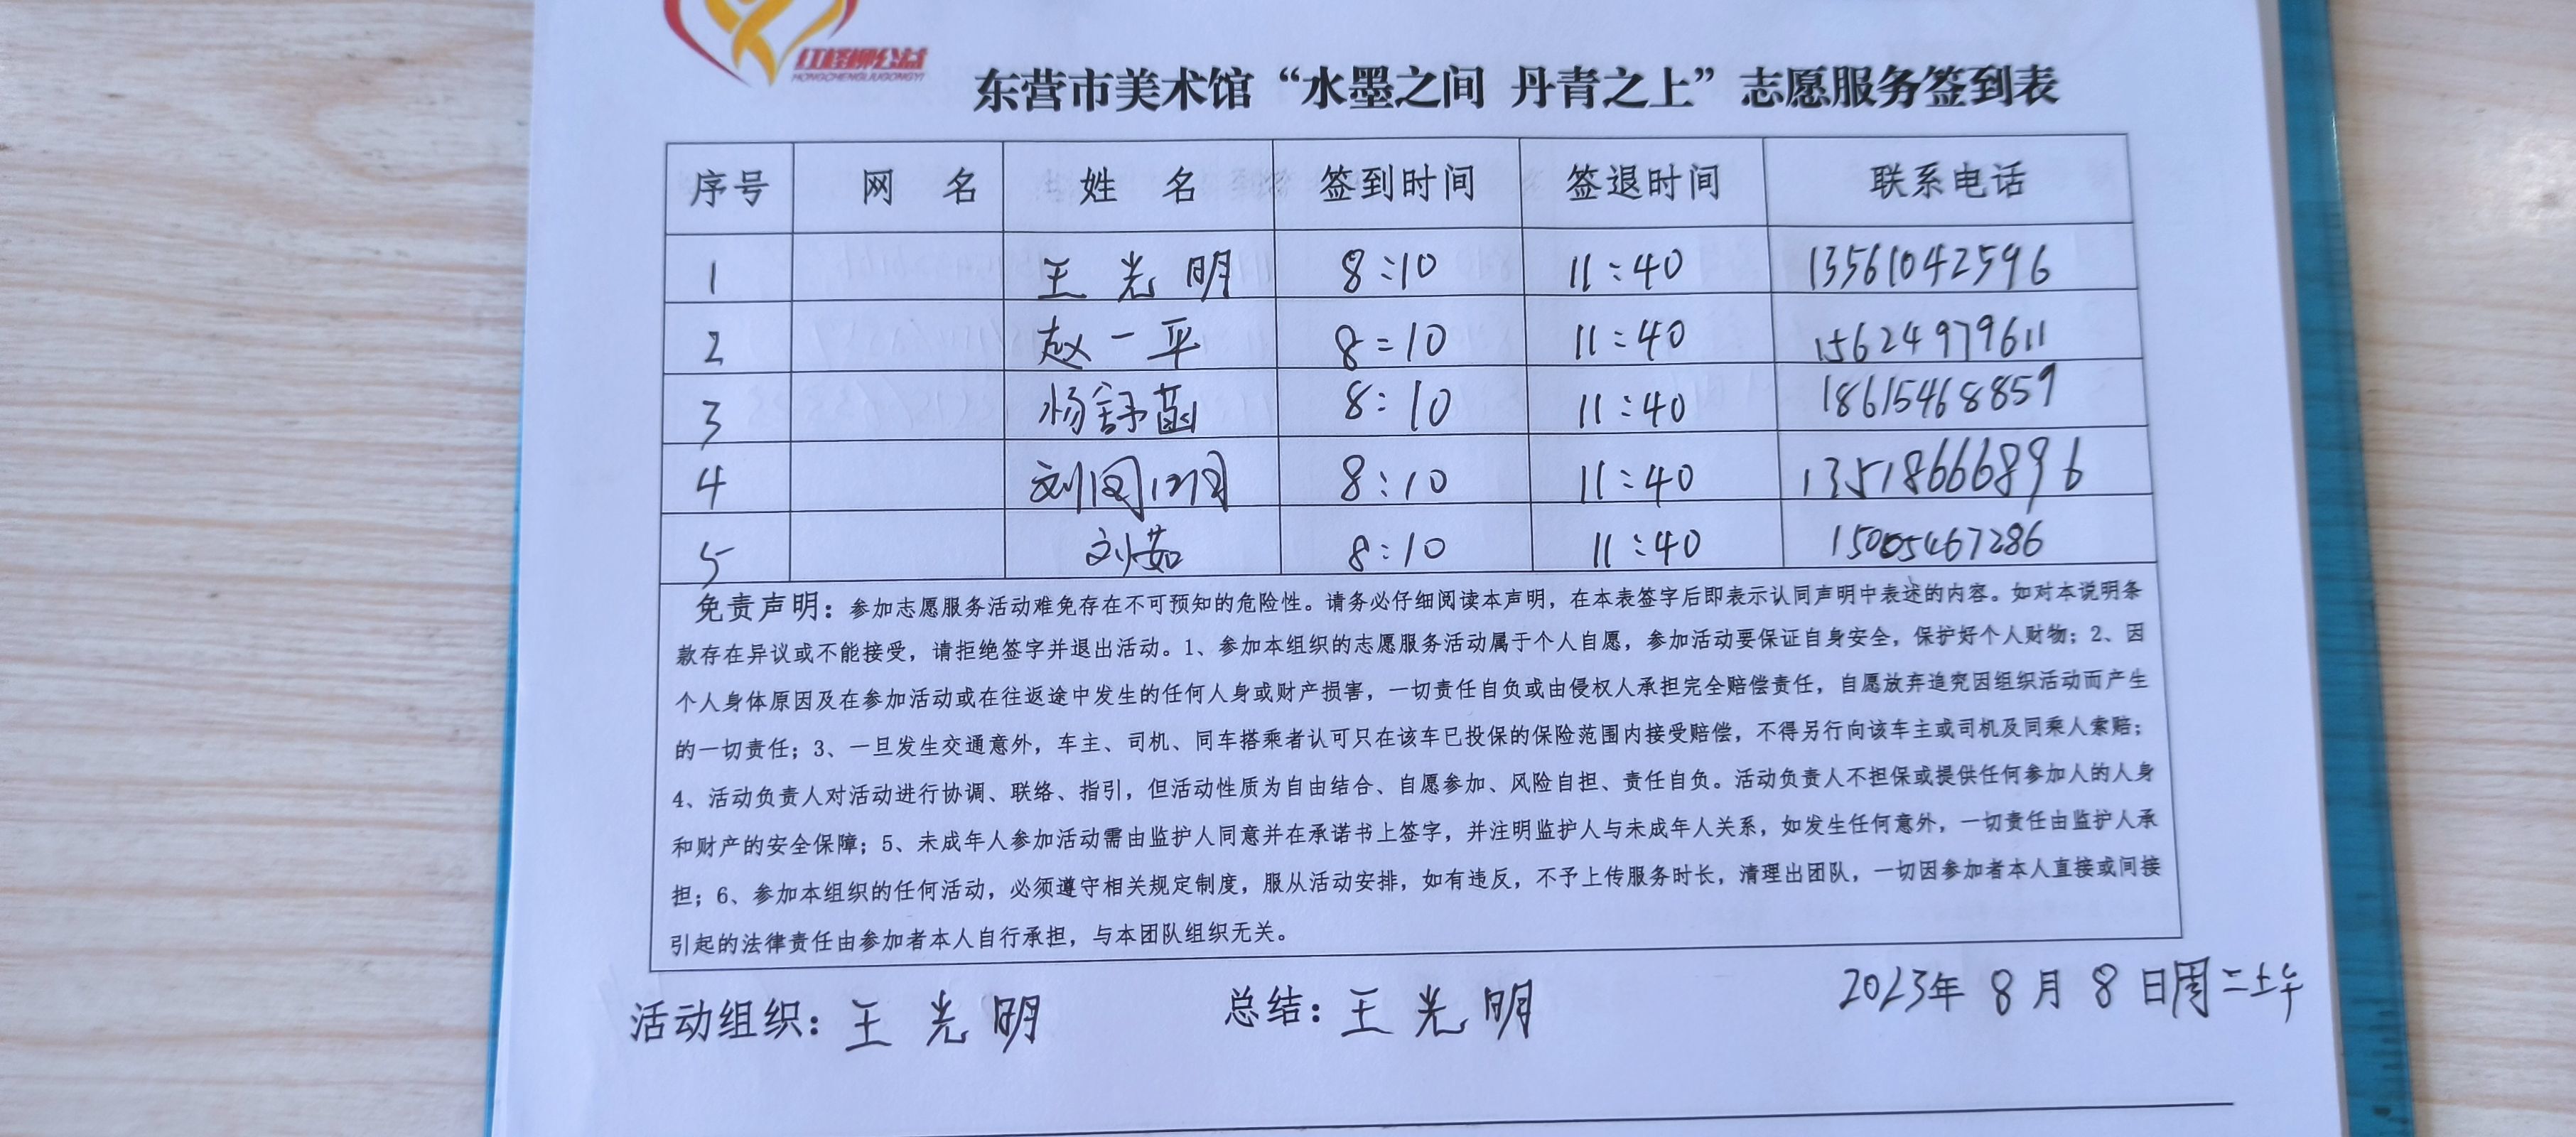 红柽柳公益
HONGCHENGLIUGONGYI
东营市美术馆“水墨之间 丹青之上”志愿服务签到表
序号 网 名 姓 名 签到时间 签退时间 联系电话
1 王光明 8:10 11:40 13561042596
2 赵一平 8:10 11:40 15624979611
3 杨舒菡 8:10 11:40 18615468859
4 刘 8:10 11:40 13518666896
5 刘茹 8:10 11:40 15005467286
免责声明：参加志愿服务活动难免存在不可预知的危险性。请务必仔细阅读本声明，在本表签字后即表示认同声明中表述的内容。如对本说明条
款存在异议或不能接受，请拒绝签字并退出活动。1、参加本组织的志愿服务活动属于个人自愿，参加活动要保证自身安全，保护好个人财物；2、因
个人身体原因及在参加活动或在往返途中发生的任何人身或财产损害，一切责任自负或由侵权人承担完全赔偿责任，自愿放弃追究因组织活动而产生
的一切责任；3、一旦发生交通意外，车主、司机、同车搭乘者认可只在该车已投保的保险范围内接受赔偿，不得另行向该车主或司机及同乘人索赔；
4、活动负责人对活动进行协调、联络、指引，但活动性质为自由结合、自愿参加、风险自担、责任自负。活动负责人不担保或提供任何参加人的人身
和财产的安全保障；5、未成年人参加活动需由监护人同意并在承诺书上签字，并注明监护人与未成年人关系，如发生任何意外，一切责任由监护人承
担；6、参加本组织的任何活动，必须遵守相关规定制度，服从活动安排，如有违反，不予上传服务时长，清理出团队，一切因参加者本人直接或间接
引起的法律责任由参加者本人自行承担，与本团队组织无关。
活动组织：王光明 总结：王光明 2023年8月8日周二上午